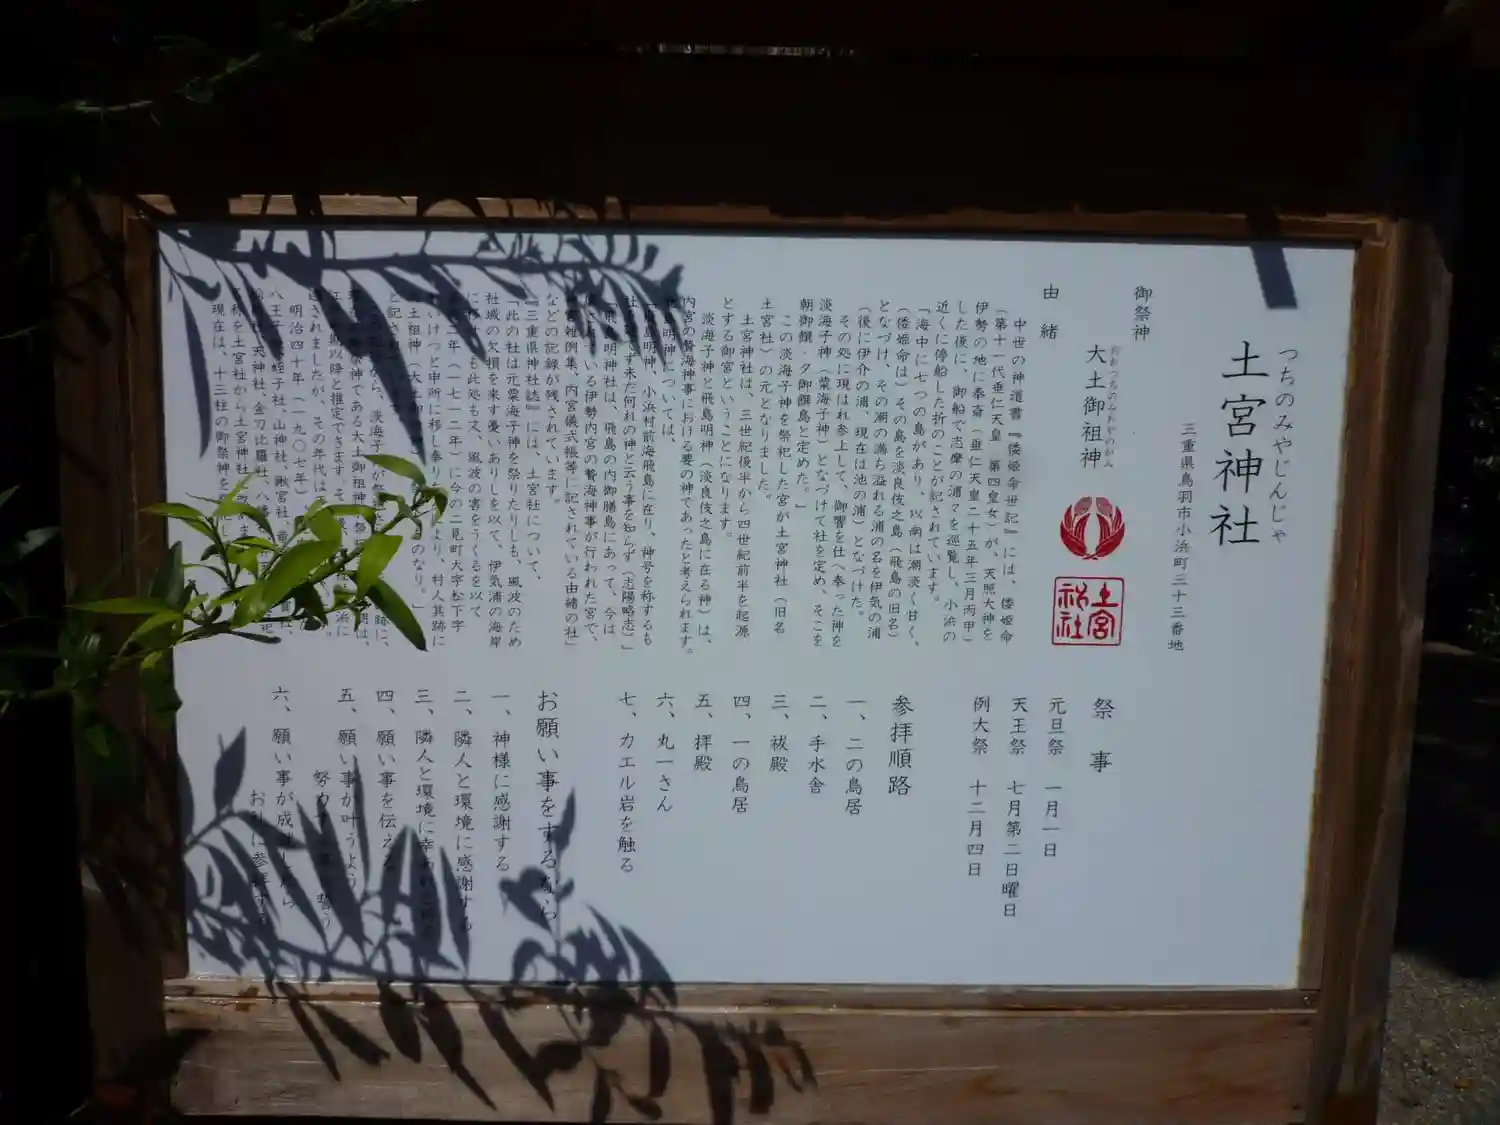 つちのみやじんじゃ
土宮神社
三重県鳥羽市小浜町三十三番地
御祭神
おおつちのみおやのかみ
大土御祖神
土宮
神社
由緒
中世の神道書『倭姫命世記』には、倭姫命
(第十一代垂仁天皇 第四皇女)が、天照大神を
伊勢の地に奉斎(垂仁天皇二十五年三月丙申)
した後に、御船で志摩の浦々を巡覧し、小浜の
近くに停船した折のことが記されています。
「海中に七つの島があり、以南は潮淡く甘く、
(倭姫命は)その島を淡良伎之島(飛島の旧名)
となづけ、その潮の満ち溢れる浦の名を伊気の浦
(後に伊介の浦、現在は池の浦)となづけた。
その処に現はれ参上して、御饗を仕へ奉った神を
淡海子神(粟海子神)となづけて社を定め、そこを
朝御饌・夕御饌島と定めた。」
この淡海子神を祭祀した宮が土宮神社(旧名
土宮社)の元となりました。
土宮神社は、三世紀後半から四世紀前半を起源
とする御宮ということになります。
淡海子神と飛島明神(淡良伎之島に在る神)は、
内宮の贄海神事における要の神であったと考えられます。
明神については、
明神、小浜村前海飛島に在り、神号を称するも
未だ何れの神と云う事を知らず(志陽略志)」
明神社は、飛島の内御膳島にあって、今は
いる伊勢内宮の贄海神事が行われた宮で、
雑例集、内宮儀式帳等に記されている由緒の社」
などの記録が残されています。
『三重県神社誌』には、土宮社について、
「此の社は元粟海子神を祭りたりしも、風波のため
社域の欠損を来す憂いありしを以て、伊気浦の海岸
に移せしも此処も又、風波の害をうくるを以て
二年(一七一二年)に今の二見町大字松下字
いけつと申所に移し奉り
より、村人其跡に
土祖神(大土
なり。」
と記され
明治四十年(一九〇七年)
現在は、十三柱の御祭神を
祭事
元旦祭 一月一日
天王祭 七月第二日曜日
例大祭 十二月四日
参拝順路
一、二の鳥居
二、手水舎
三、祓殿
四、一の鳥居
五、拝殿
六、丸一さん
七、カエル岩を触る
お願い事をするなら
一、神様に感謝する
二、隣人と環境に感謝する
三、隣人と環境に幸あれと
四、願い事を伝える
五、願い事が叶うよう
努力す 誓う
六、願い事が成就したら
お礼に参拝する